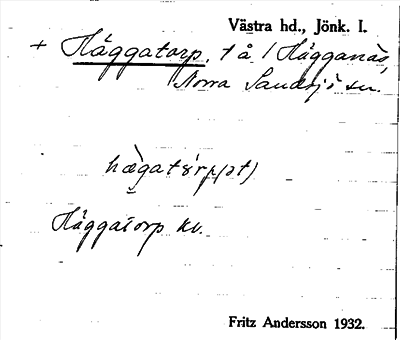 Västra hd., Jönk. l.
+ Häggatorp, t å / Hägganäs,
Norra Sandsjö sn.
hægatårp(ət)
Häggatorp kv.
Fritz Andersson 1932.